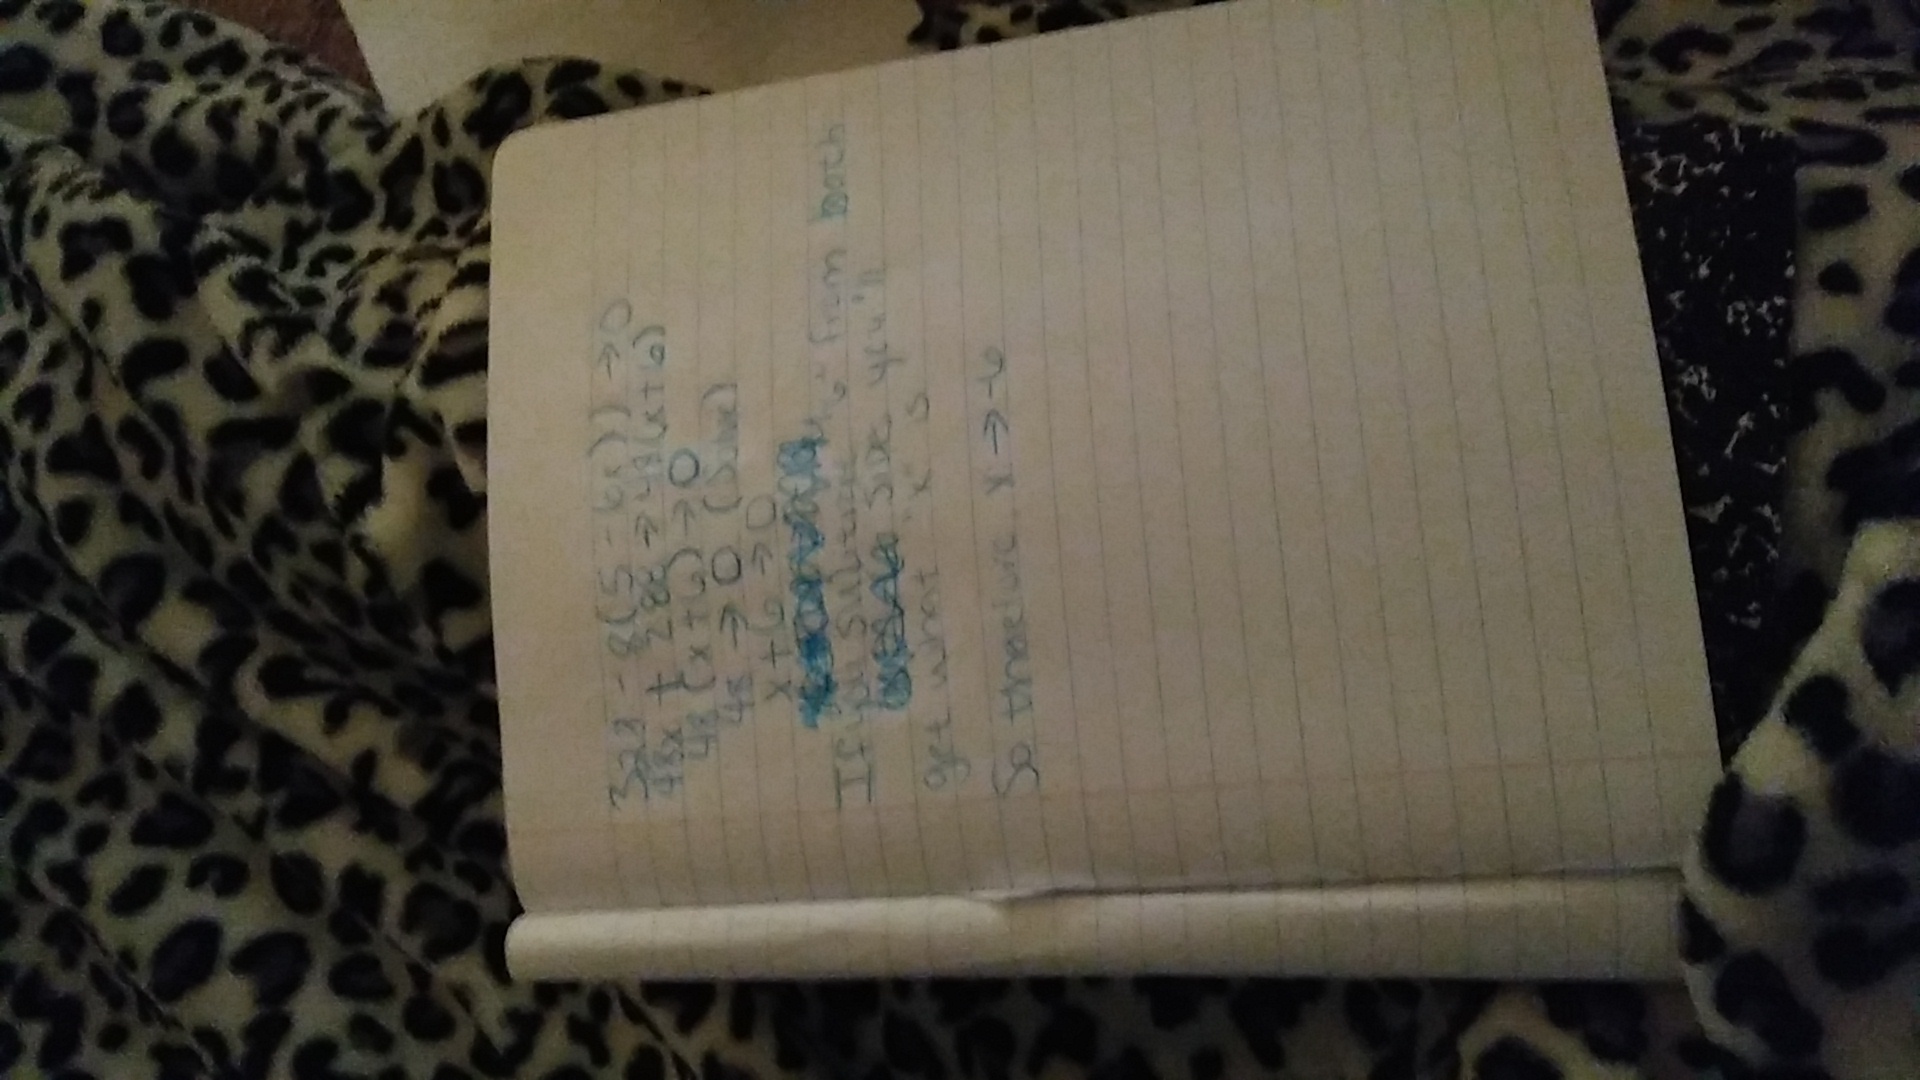 328 - 8(5 - 6x)) → 0
48x + 288 → 48(x+6)
48(x+6) → 0
48 → 0 (Solve)
x+6 → 0
If you Subtract "6" from both
side you'll
get what "x" is
So therefore x → -6